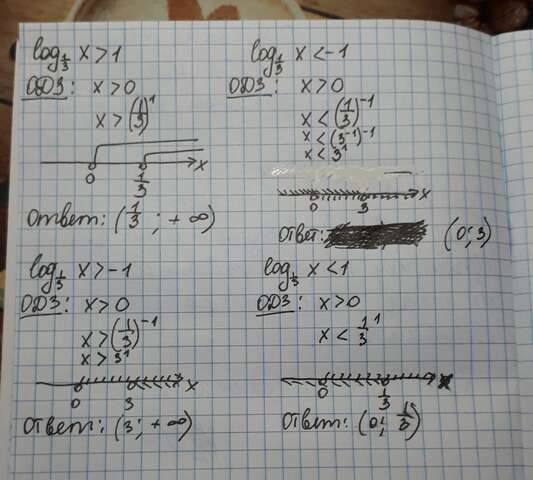 log_{1/3} x > 1
ОДЗ: x > 0
x > (1/3)^1
0 1/3 x
Ответ: (1/3; +∞)
log_{1/3} x < -1
ОДЗ: x > 0
x < (1/3)^{-1}
x < (3^{-1})^{-1}
x < 3^1
0 3 x
Ответ: (0; 3)
log_{1/3} x > -1
ОДЗ: x > 0
x > (1/3)^{-1}
x > 3^1
0 3 x
Ответ: (3; +∞)
log_{1/3} x < 1
ОДЗ: x > 0
x < 1/3^1
0 1/3 x
Ответ: (0; 1/3)